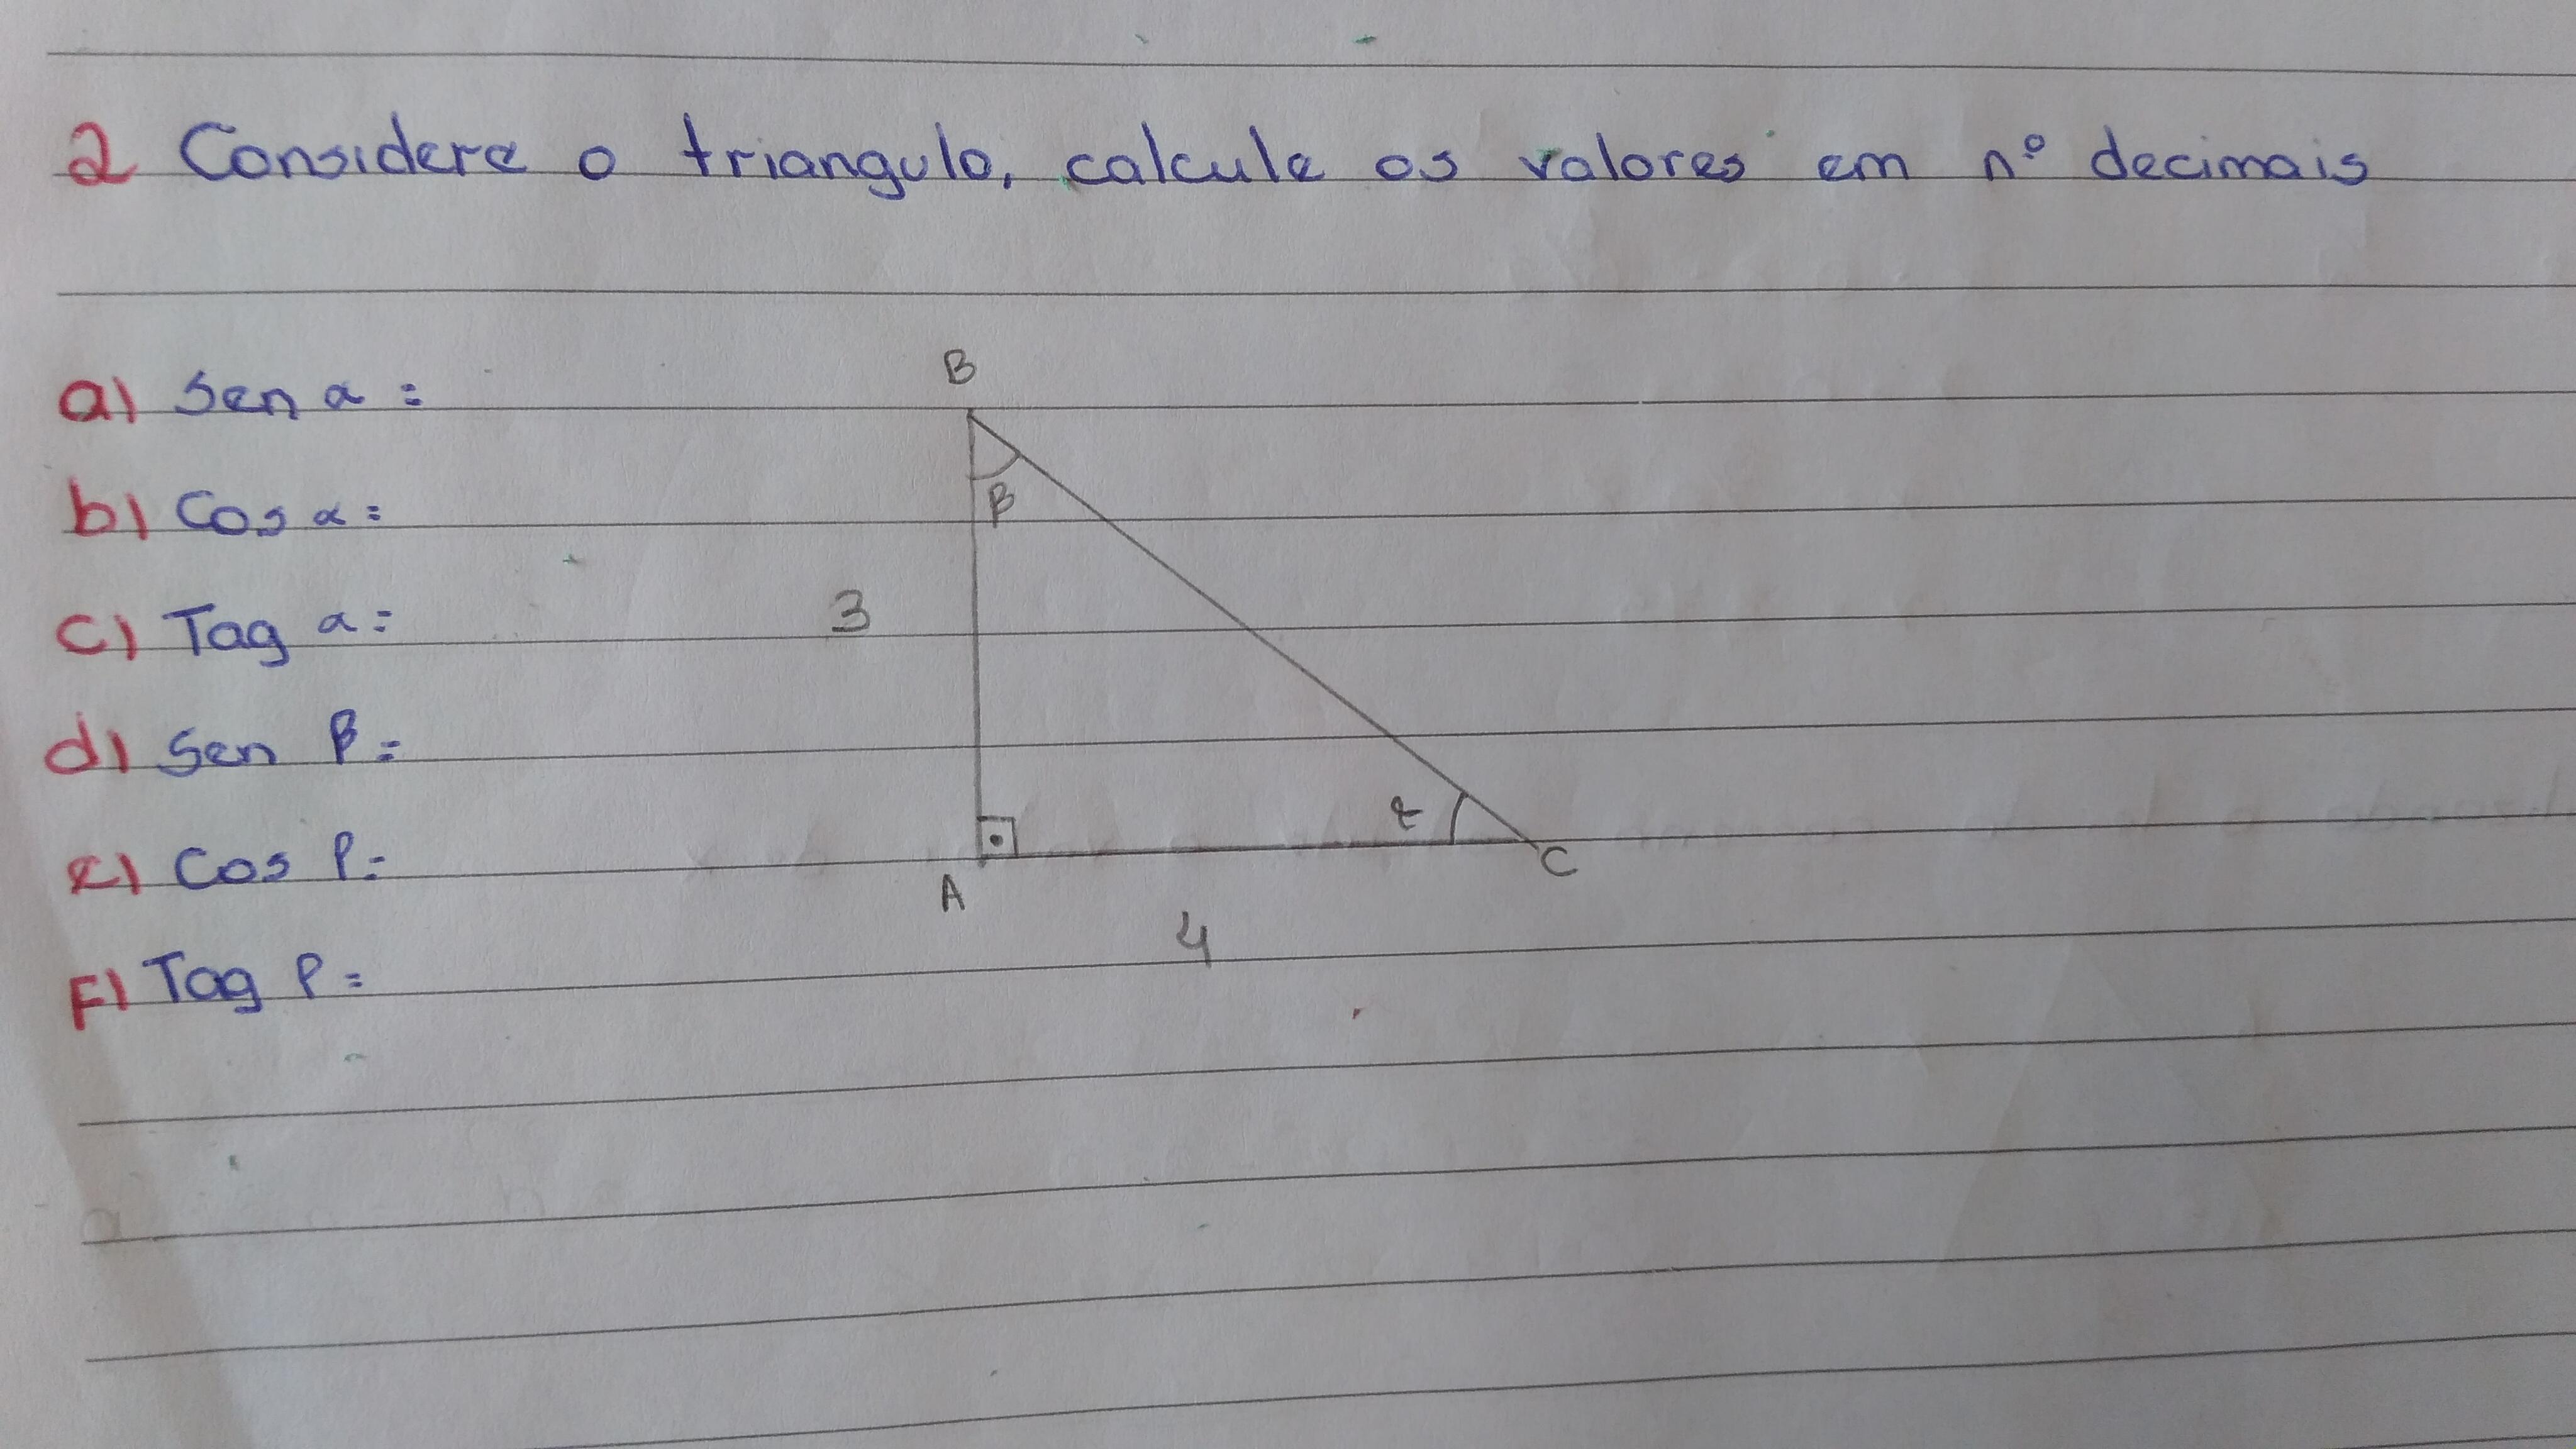 2 Considere o triangulo, calcule os valores em nº decimais
a) Sen α =
b) Cos α =
c) Tag α =
d) Sen β =
e) Cos β =
F) Tag β =
B
β
3
α
A
C
4